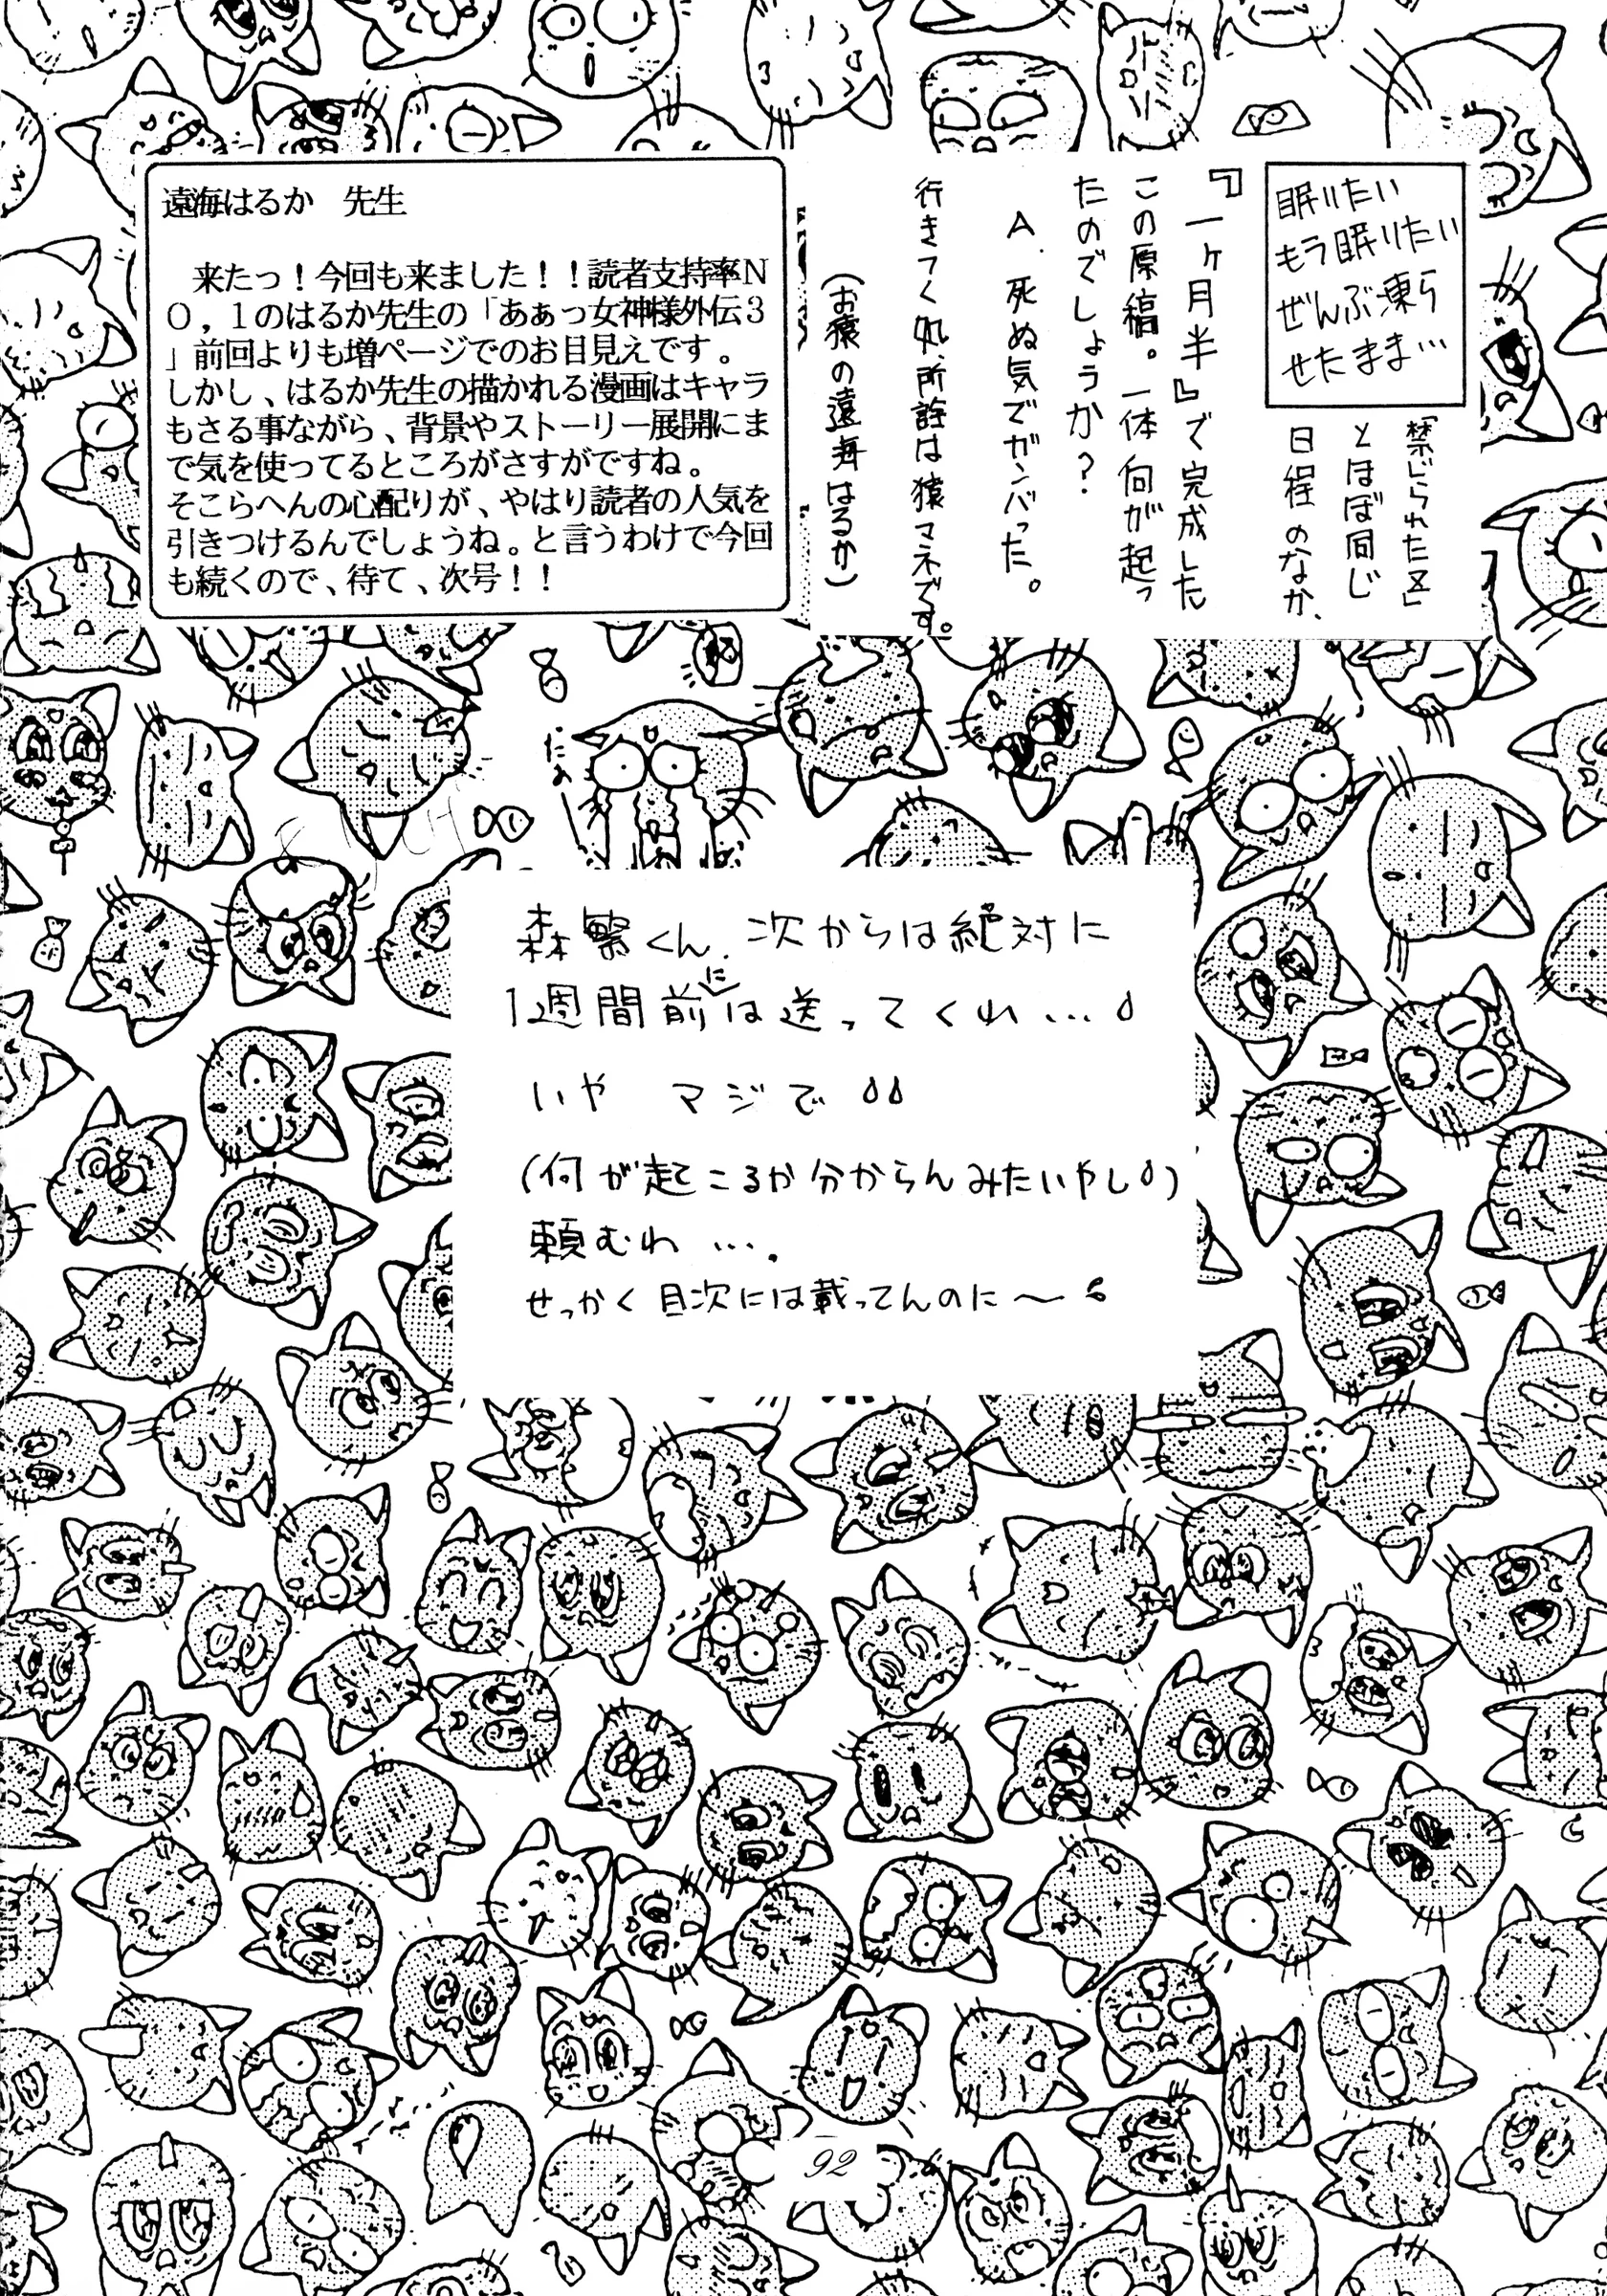 眠りたい
もう眠りたい
ぜんぶ凍ら
せたまま…
「禁じられた区」
とほぼ同じ
日程のなか、
『一ヶ月半』で完成した
この原稿。一体何が起っ
たのでしょうか？
A．死ぬ気でガンバった。
行きつく処、所詮は猿マネです。
（お猿の遠海はるか）
遠海はるか　先生
来たっ！今回も来ました！！読者支持率N
O，1のはるか先生の「あぁっ女神様外伝3
」前回よりも増ページでのお目見えです。
しかし、はるか先生の描かれる漫画はキャラ
もさる事ながら、背景やストーリー展開にま
で気を使ってるところがさすがですね。
そこらへんの心配りが、やはり読者の人気を
引きつけるんでしょうね。と言うわけで今回
も続くので、待て、次号！！
にゃあ
森繁くん、次からは絶対に
1週間前には送ってくれ…
いや　マジで
（何が起こるか分からんみたいやし）
頼むわ….
せっかく目次には載ってんのに〜
92